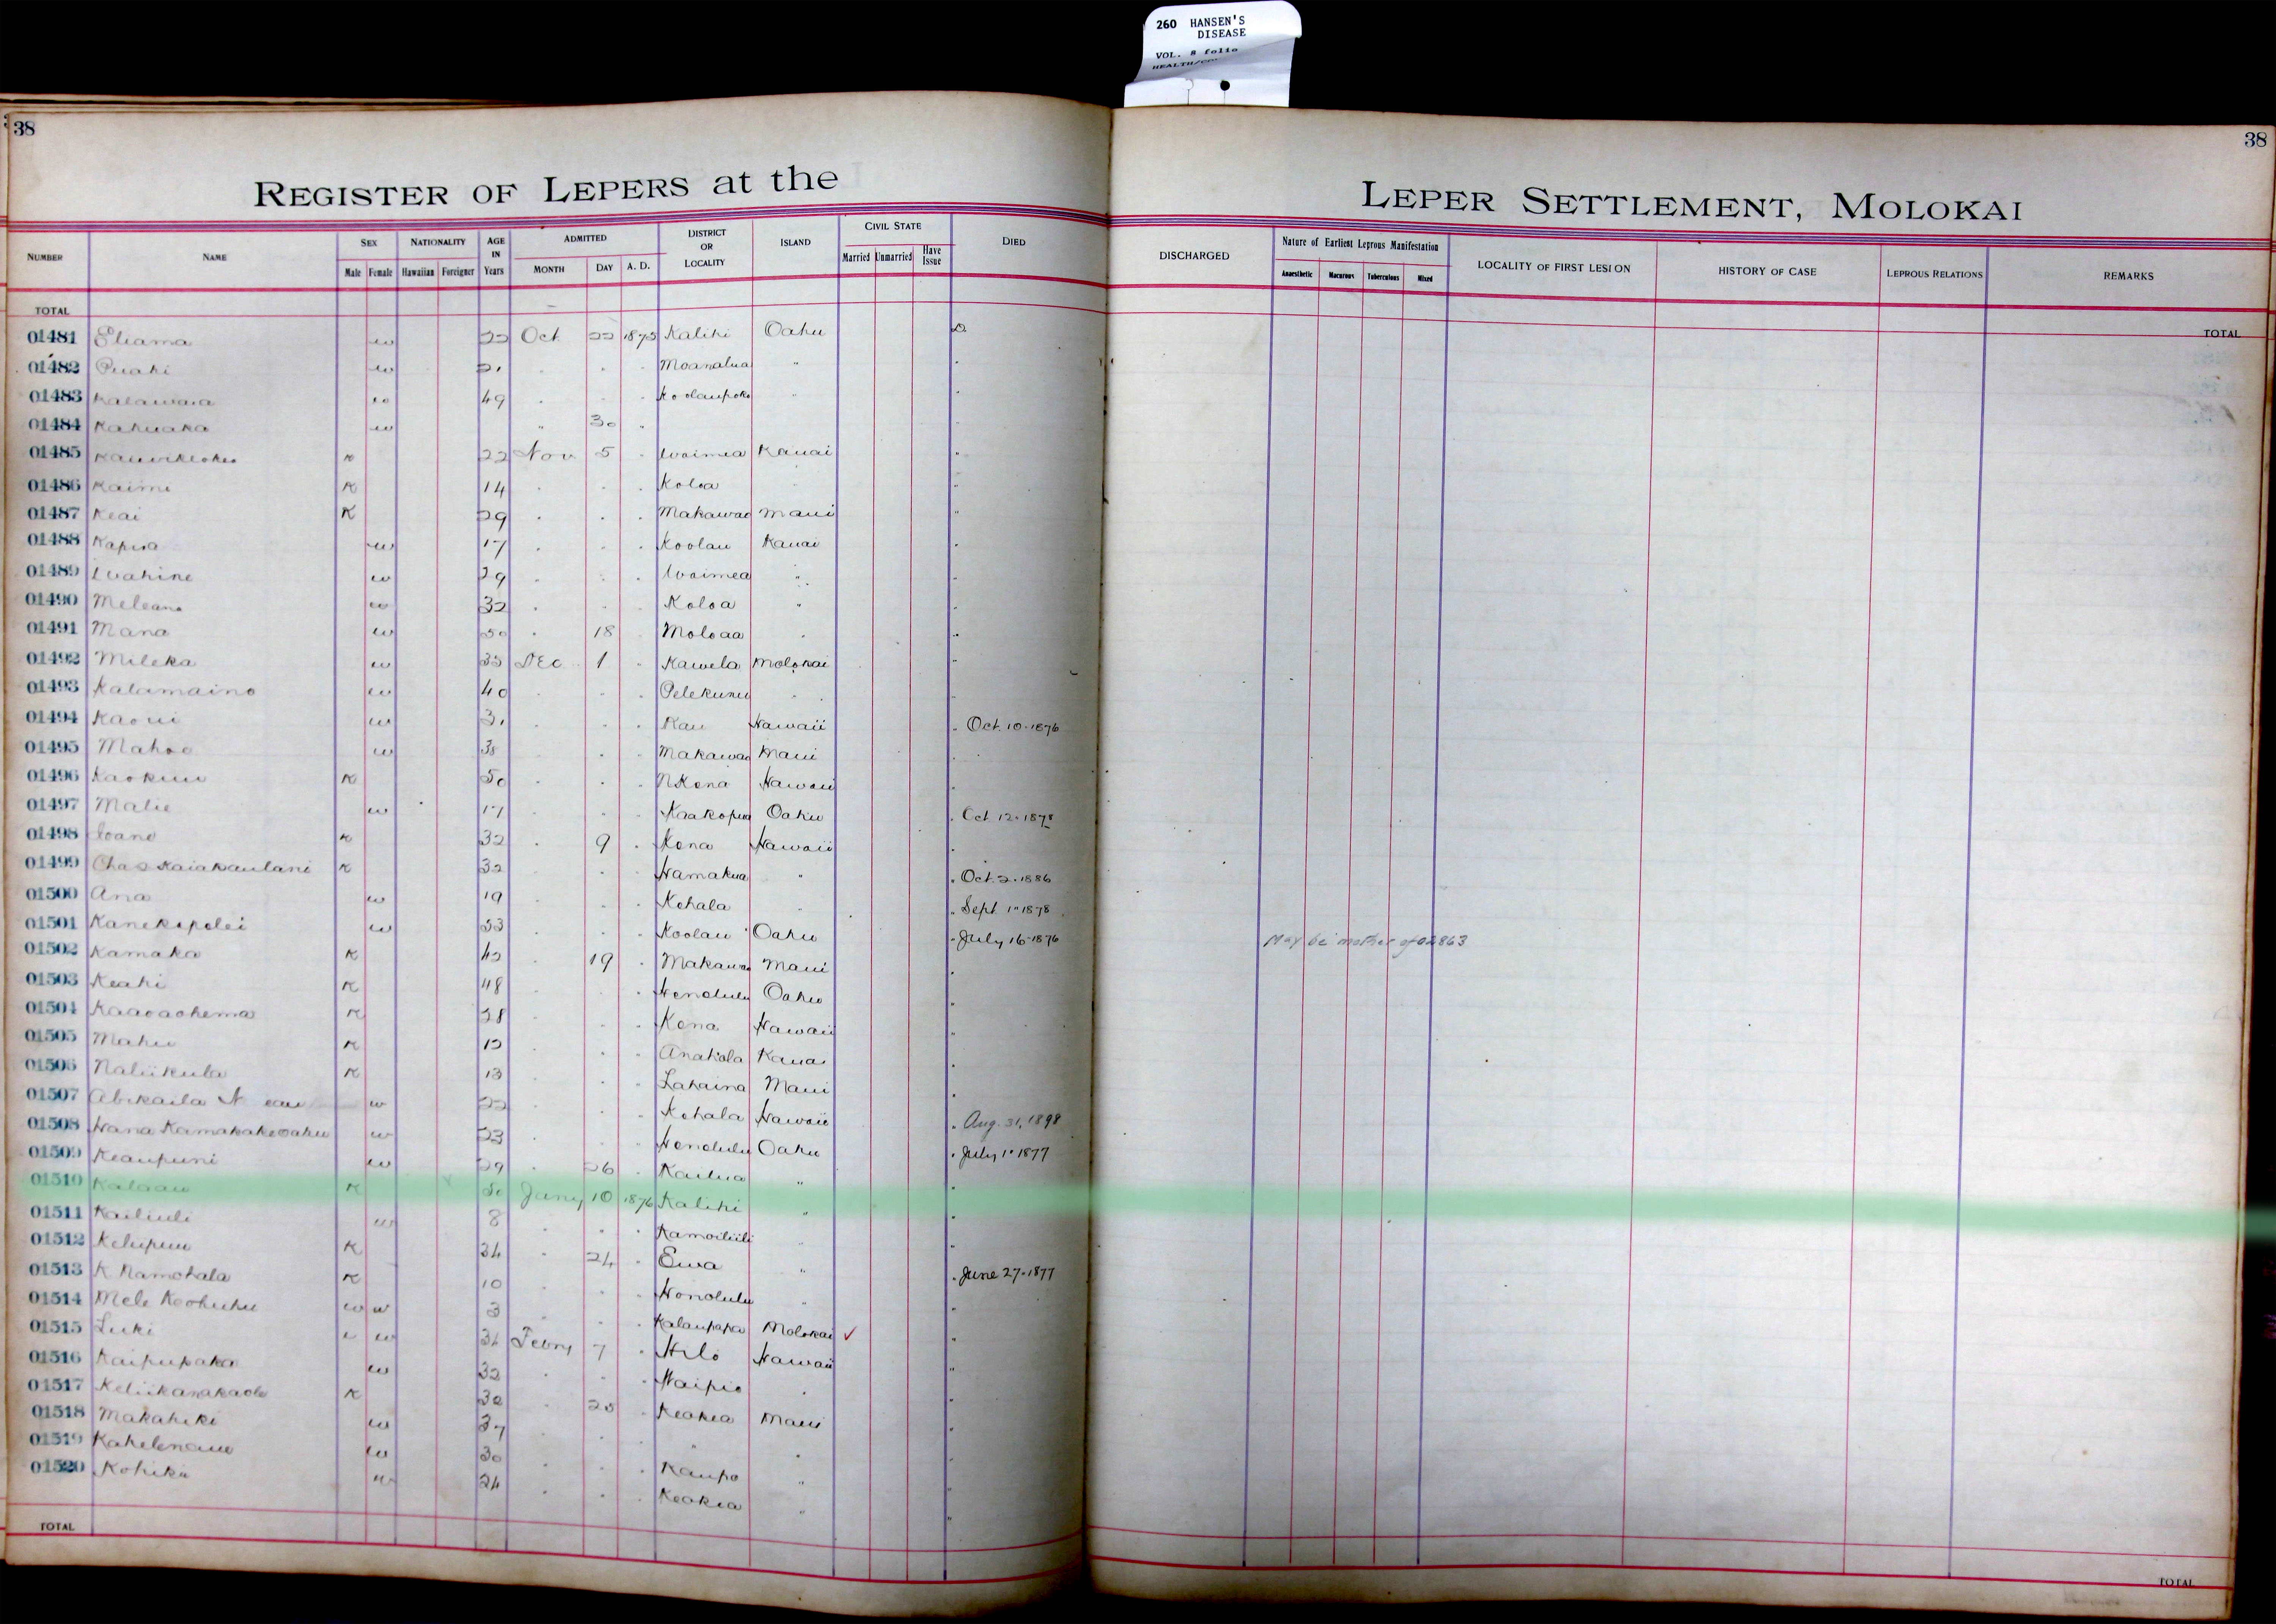 260 HANSEN'S
DISEASE
VOL. 8 folio
38
38
REGISTER OF LEPERS at the LEPER SETTLEMENT, MOLOKAI
NUMBER NAME SEX Male Female NATIONALITY Hawaiian Foreigner AGE IN Years ADMITTED MONTH DAY A. D. DISTRICT OR LOCALITY ISLAND CIVIL STATE Married Unmarried Have Issue DIED
DISCHARGED Nature of Earliest Leprous Manifestation Anaesthetic Macurous Tuberculous Mixed LOCALITY OF FIRST LESION HISTORY OF CASE LEPROUS RELATIONS REMARKS
TOTAL TOTAL
01481 Eliama w 22 Oct 22 1875 Kalihi Oahu D
01482 Puahi w 21 " " " Moanalua "
01483 Kalawaia w 49 " " " Koolaupoko "
01484 Kahuaka w " 30 "
01485 k 22 Nov 5 " Waimea Kauai "
01486 Kaimi k 14 " " " Koloa "
01487 Keai K 29 " " " Makawao Maui "
01488 Kapua w 17 " " " Koolau Kauai "
01489 Wahine w 29 " " " Waimea " "
01490 Meleana w 32 " " " Koloa " "
01491 Mana w 50 " 18 " Moloaa " "
01492 Mileka w 35 Dec 1 " Kawela Molokai "
01493 Kalamaino w 40 " " " Pelekunu " "
01494 Kaoui w 31 " " " Kau Hawaii " Oct. 10-1876
01495 Mahoe w 38 " " " Makawao Maui "
01496 Kaokuu k 50 " " " N Kona Hawaii "
01497 Malie w 17 " " " Kaakopua Oahu " Oct 12-1878
01498 Ioane k 32 " 9 " Kona Hawaii "
01499 Chas Kaiakaulani k 32 " " " Hamakua " " Oct. 2-1886
01500 Ana w 19 " " " Kohala " " Sept 1-1878
01501 Kanekapolei w 53 " " " Koolau Oahu " July 16-1876 May be mother of 02863
01502 Kamaka k 42 " 19 " Makawao Maui "
01503 Keahi k 48 " " " Honolulu Oahu "
01504 Kaaoaohema k 28 " " " Kona Hawaii "
01505 Mahu k 12 " " " Anahola Kauai "
01506 Naliikula k 13 " " " Lahaina Maui "
01507 Abikaila w 22 " " " Kohala Hawaii " Aug. 31, 1898
01508 Hana Kamakakeoahu w 23 " " " Honolulu Oahu " July 1-1877
01509 Keaupuni w 29 " 26 " Kailua " "
01510 Kalaau k 50 Jany 10 1876 Kalihi " "
01511 Kailiuli w 8 " " " Kamoiliili " "
01512 Kelupuu k 34 " 24 " Ewa " " June 27-1877
01513 K Namohala k 10 " " " Honolulu " "
01514 Mele Keohuhu w w 3 " " " Kalaupapa Molokai ✓ "
01515 Luki w 34 Febry 7 " Hilo Hawaii "
01516 Kaipupaka w 32 " " " Waipio " "
01517 Keliikanakaole k 32 " 25 " Keokea Maui "
01518 Makahiki w 37 " " " " " "
01519 Kahelenaue w 30 " " " Kaupo " "
01520 Kohika w 24 " " " Keokea " "
TOTAL TOTAL